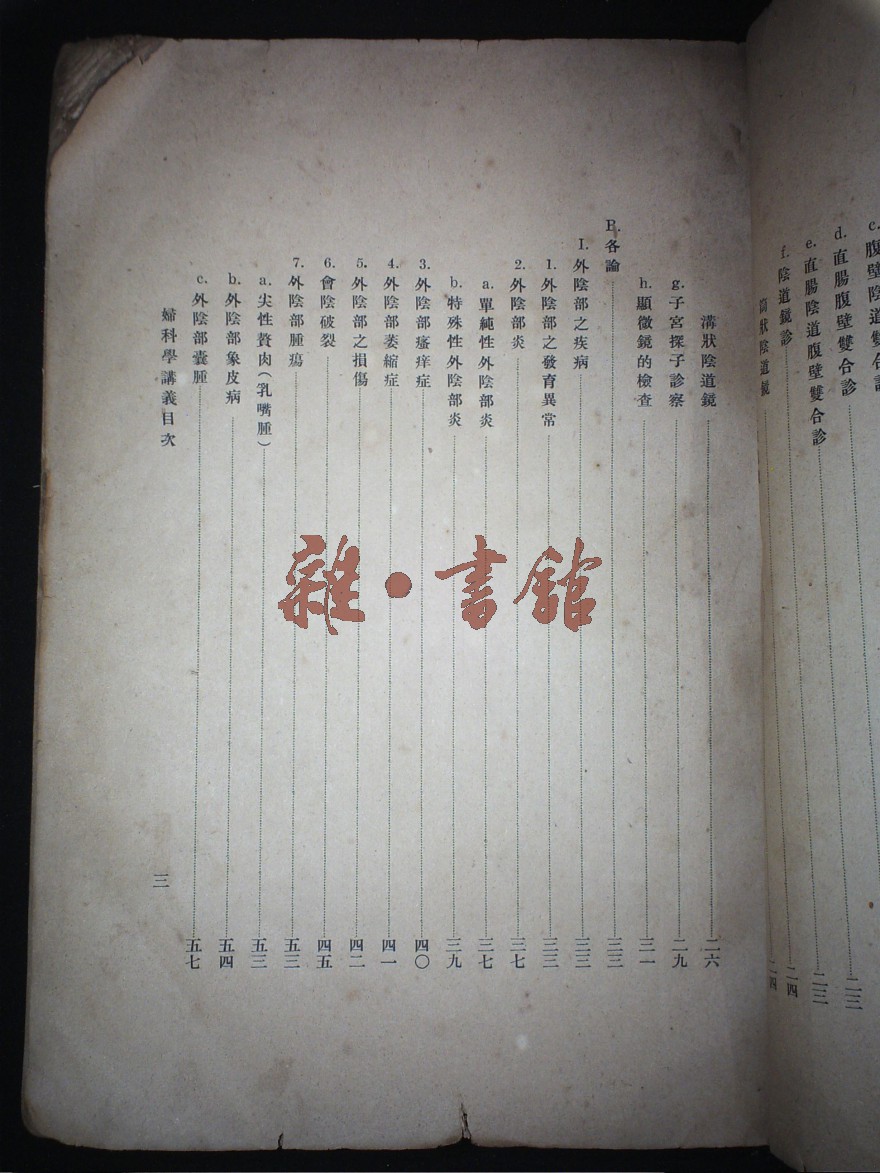 腹壁陰道雙合診
d. 直腸腹壁雙合診 二三
e. 直腸陰道腹壁雙合診 二三
f. 陰道鏡診 二四
筒狀陰道鏡 二四
溝狀陰道鏡 二六
g. 子宮探子診察 二九
h. 顯微鏡的檢查 三一
B. 各論 三三
I. 外陰部之疾病 三三
1. 外陰部之發育異常 三三
2. 外陰部炎 三七
a. 單純性外陰部炎 三七
b. 特殊性外陰部炎 三九
3. 外陰部瘙痒症 四〇
4. 外陰部萎縮症 四一
5. 外陰部之損傷 四二
6. 會陰破裂 四五
7. 外陰部腫瘍 五三
a. 尖性贅肉(乳嘴腫) 五三
b. 外陰部象皮病 五四
c. 外陰部囊腫 五七
婦科學講義目次 三
雜·書館